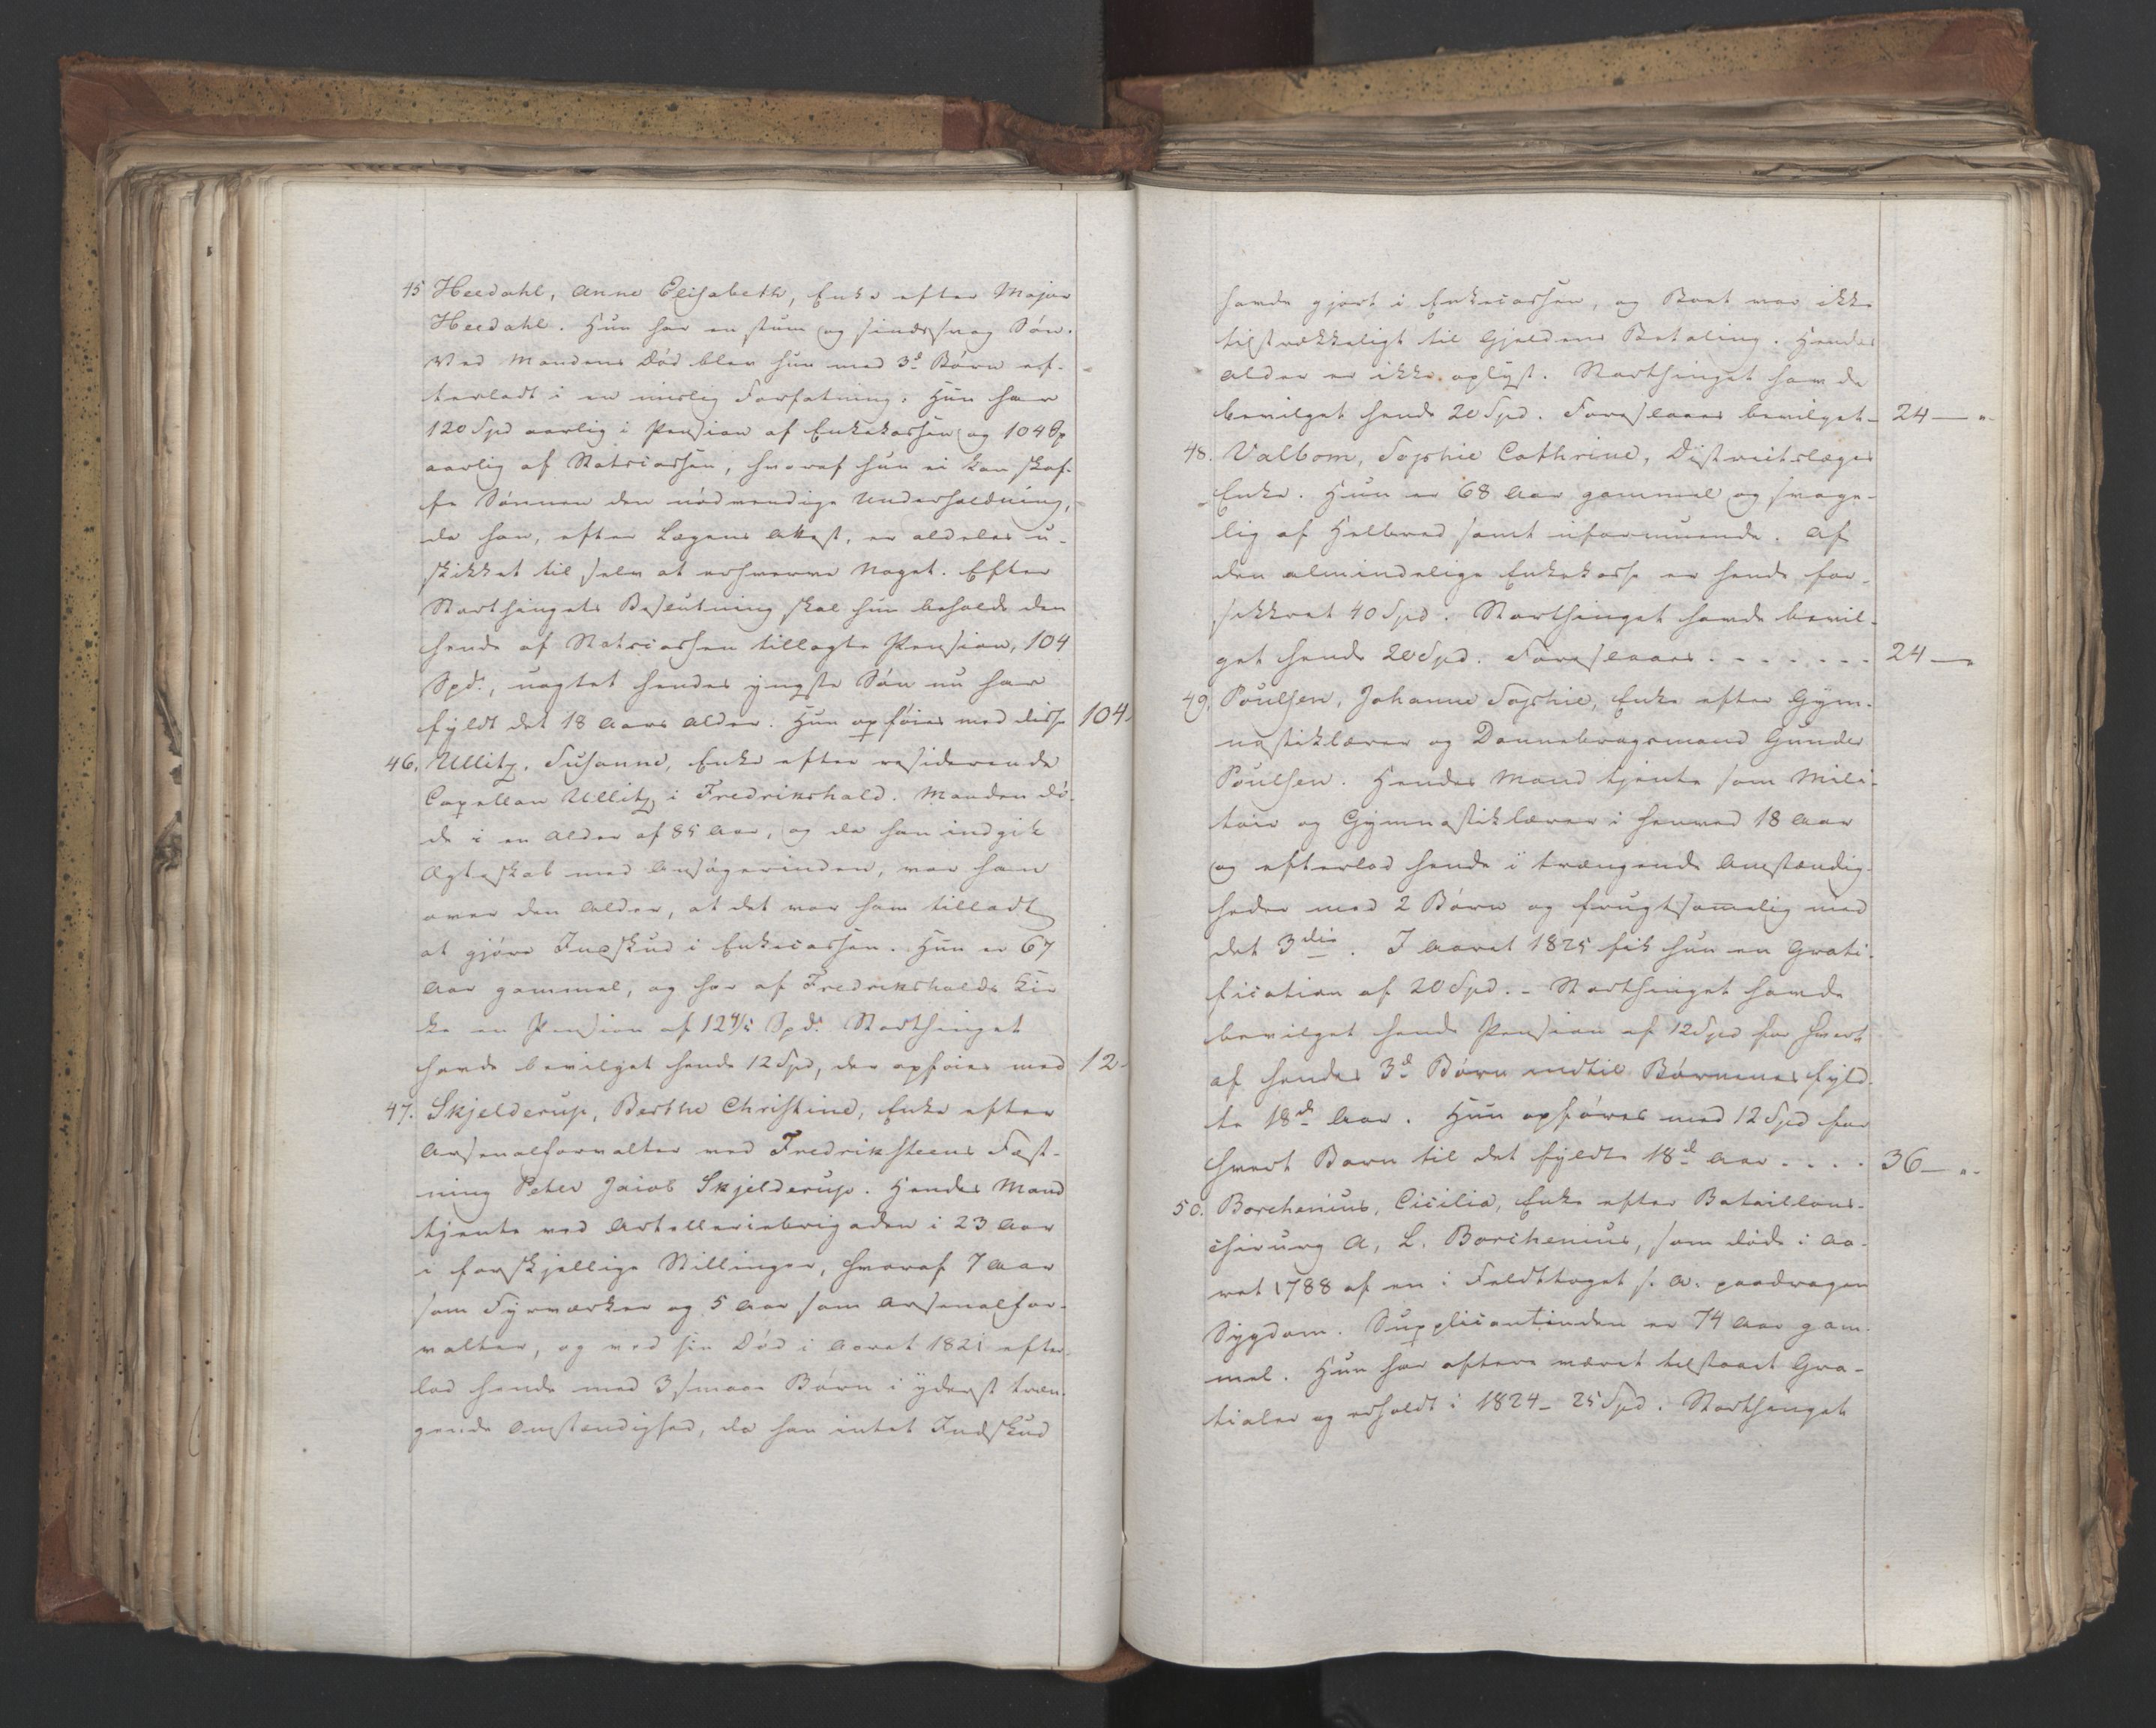 45 Heedahl, Anne Elisabeth, Enke efter Major
Heedahl. Hun har en stum og sindssvag Søn.
Ved Mandens Død blev hun med 3de Børn ef-
terladt i en mislig Forfatning. Hun har
120 Spd aarlig i Pension af Enkekassen og 104 Sp
aarlig af Statscassen, hvoraf hun ei kan skaf-
fe Sønnen den nødvendige Underholdning,
da han, efter Lægens Attest, er aldeles u-
skikket til selv at erhverve Noget. Efter
Storthingets Beslutning skal hun beholde den
hende af Statscassen tillagte Pension, 104
Spd., uagtet hendes yngste Søn nu har
fyldt det 18 Aars Alder. Hun opføies med disse 104
46. Ullitz, Susanne, Enke efter residerende
Capellan Ullitz i Fredrikshald. Manden dø-
de i en Alder af 85 Aar, og da han indgik
Ægteskab med Ansøgerinden, var han
over den Alder, at det var ham tilladt
at gjøre Indskud i Enkecassen. Hun er 67
Aar gammel, og har af Fredrikshalds Kir
ke en Pension af 12 4/5 Spd. Storthinget
havde bevilget hende 12 Spd, der opføies med 12-
47. Skjelderup, Berthe Christine, Enke efter
Arsenalforvalter ved Fredriksteens Fæst-
ning Peter Jacob Skjelderup. Hendes Mand
tjente ved Artelleriebrigaden i 23 Aar
i forskjellige Stillinger, hvoraf 7 Aar
som Fyrværker og 5 Aar som Arsenalfor-
valter, og ved sin Død i Aaret 1821 efter-
lod hende med 3 smaae Børn i yderst træn-
gende Omstændighed, da han intet Indskud
havde gjort i Enkecassen, og Boet var ikke
tilstrækkeligt til Gjeldens Betaling. Hendes
Alder er ikke oplyst. Storthinget havde
bevilget hende 20 Spd. Foreslaaes bevilget - 24 — "
48. Valbom, Sophie Cathrine, Districtslæges
Enke. Hun er 68 Aar gammel og svage-
lig af Helbred samt uformuende. Af
den almindelige Enkekasse er hende for-
sikkret 40 Spd. Storthinget havde bevil-
get hende 20 Spd. Foreslaaes . - - - - - - 24 —
49. Poulsen, Johanne Sophie, Enke efter Gym-
nastiklærer og Dannebrogsmand Gunder
Poulsen. Hendes Mand tjente som Mili-
tair og Gymnastiklærer i henved 18 Aar
og efterlod hende i trængende Omstændig-
heder med 2 Børn og frugtsommelig med
det 3die. I Aaret 1825 fik hun en Grati-
fication af 20 Spd. - Storthinget havde
bevilget hende Pension af 12 Spd for hvert
af hendes 3de Børn indtil Børnenes fyld-
te 18de Aar. Hun opføres med 12 Spd for
hvert Barn til det fyldte 18de Aar . . . . 36 — "
50. Borchenius, Cicilia, Enke efter Bataillons-
chirurg A. L. Borchenius, som døde i Aa-
ret 1788 af en i Felttoget s. A. paadragen
Sygdom. Supplicantinden er 74 Aar gam-
mel. Hun har oftere været tilstaaet Gra-
tialer og erholdt i 1824 - 25 Spd. Storthinget